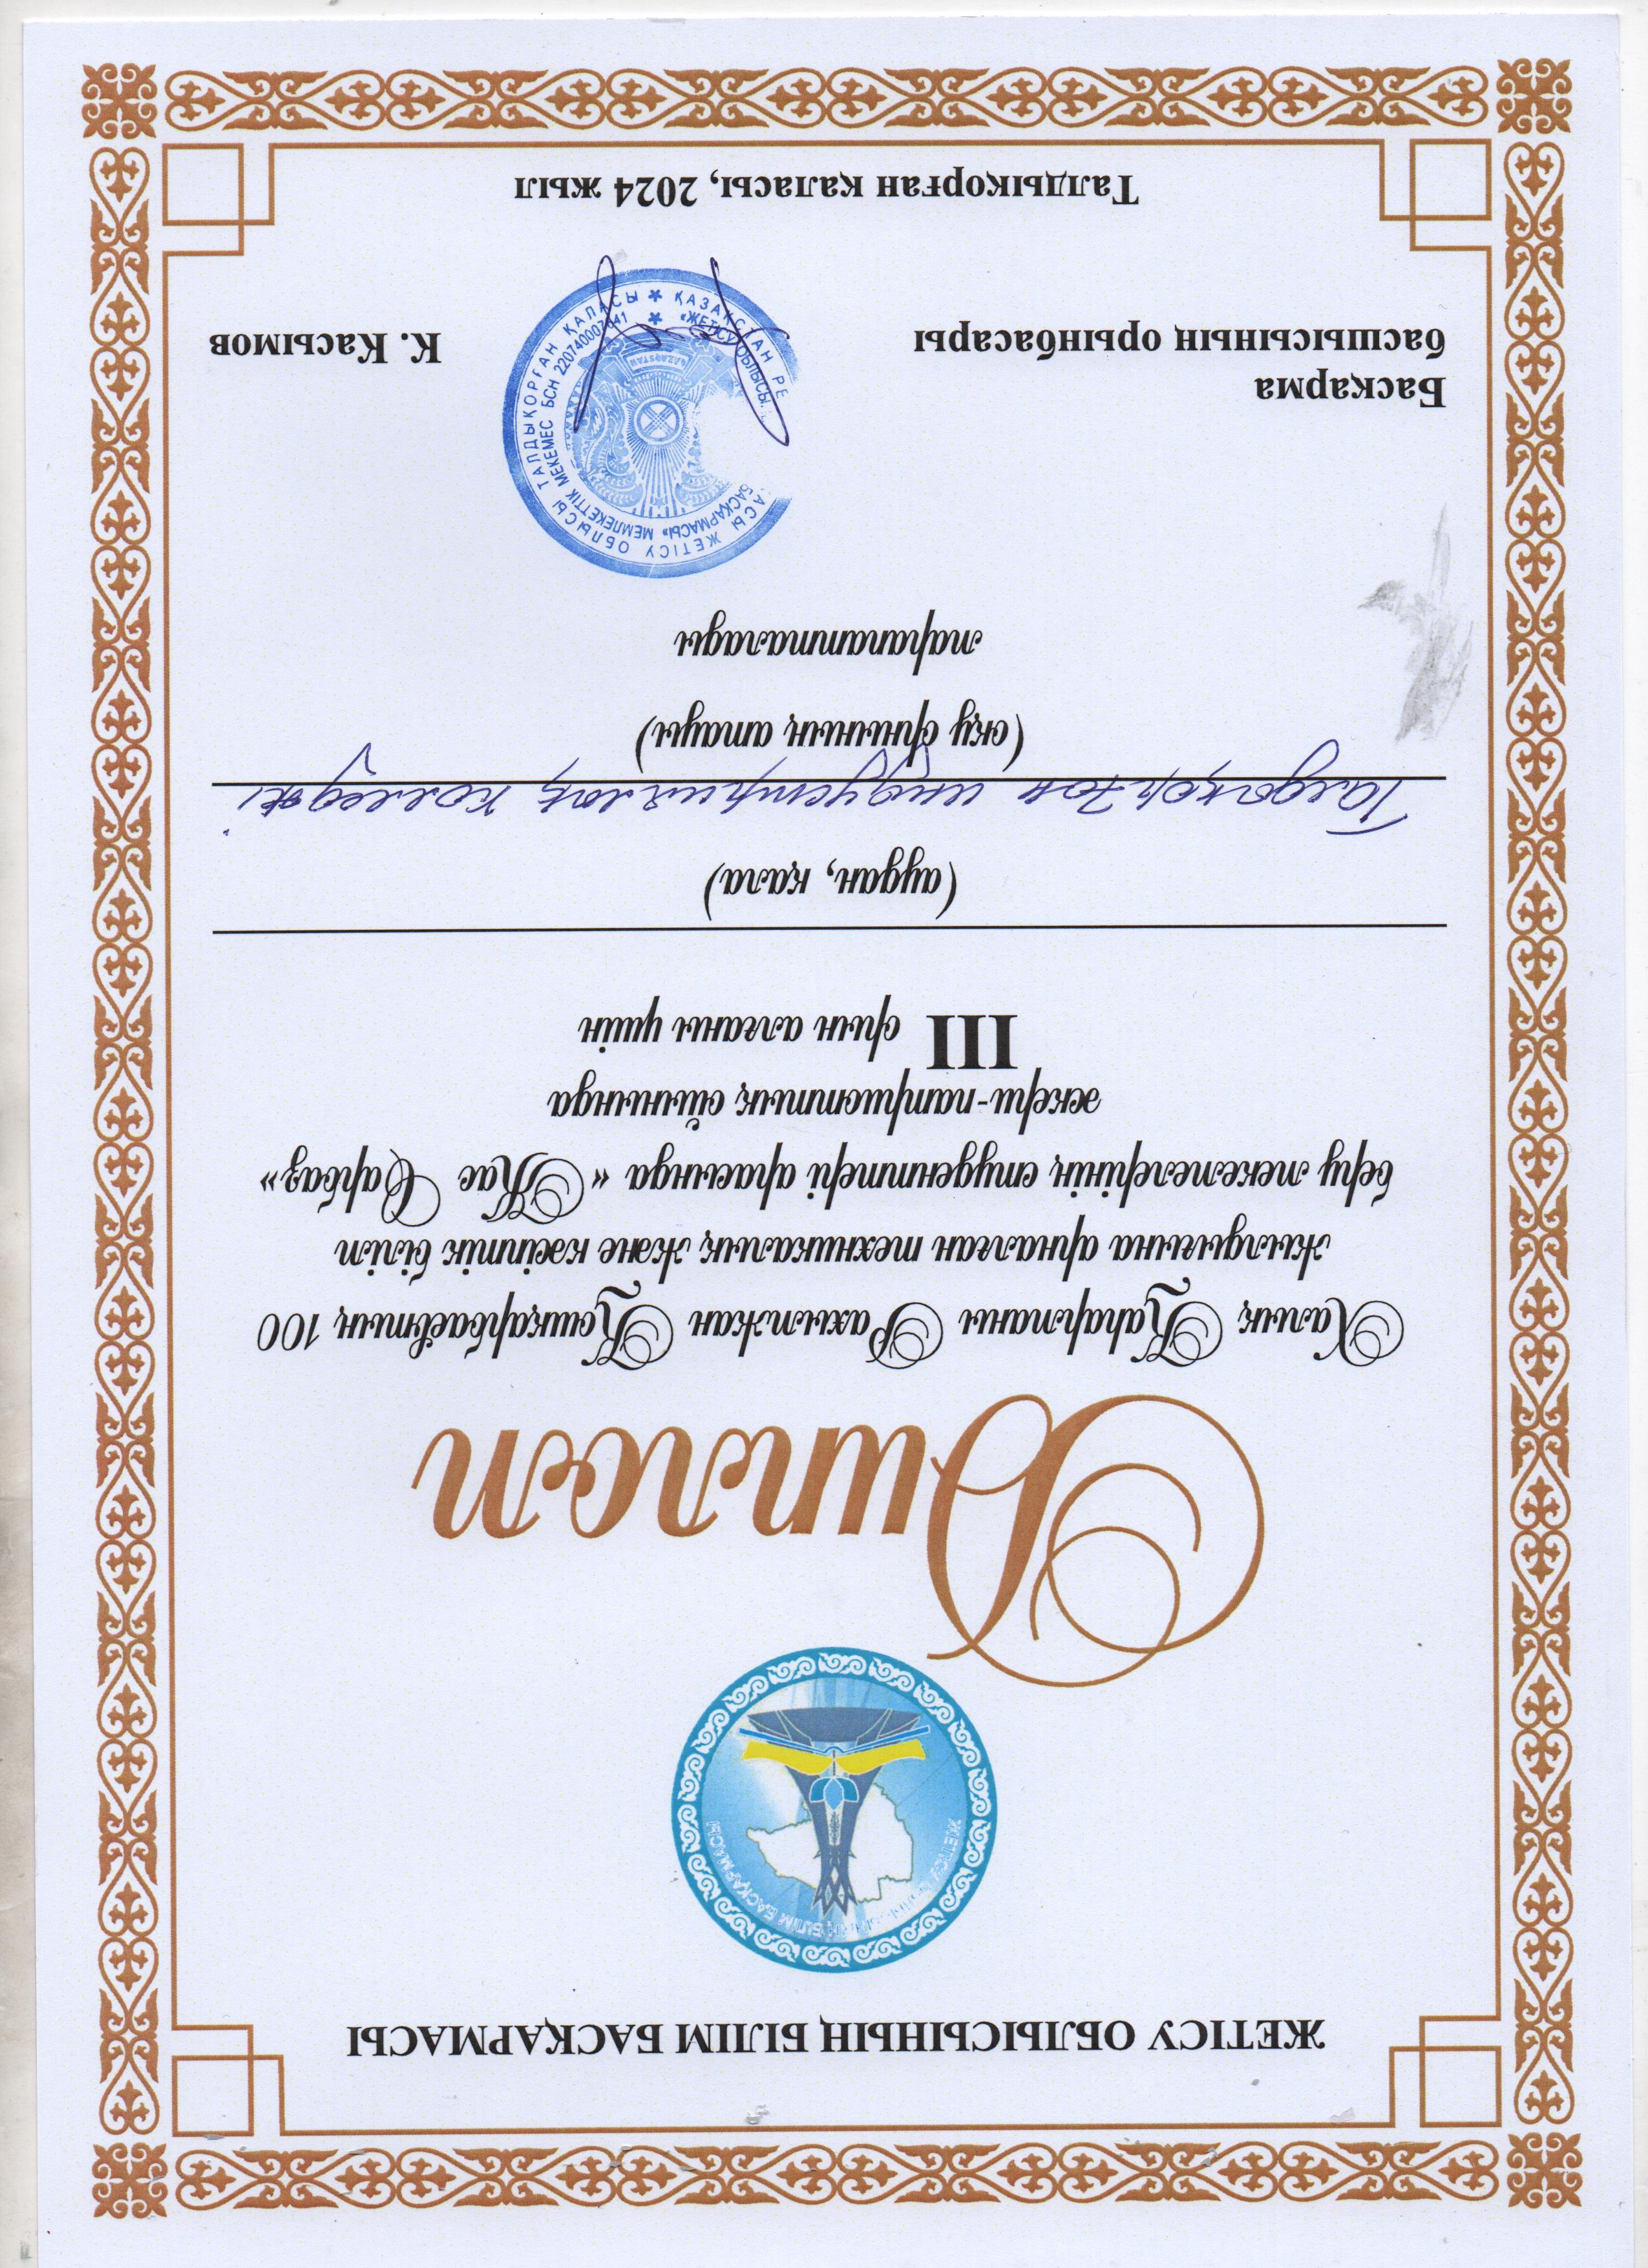 ЖЕТІСУ ОБЛЫСЫНЫҢ БІЛІМ БАСҚАРМАСЫ
Диплом
Халық Қаһарманы Рахымжан Қошқарбаевтың 100
жылдығына арналған техникалық және кәсіптік білім
беру мекемелерінің студенттері арасында «Жас Сарбаз»
әскери-патриоттық ойынында
III орын алғаны үшін
(аудан, қала)
Талдықорған индустриалық колледжі
(оқу орнының атауы)
марапатталады
Басқарма
басшысының орынбасары
К. Касымов
ҚАЗАҚСТАН
ЖЕТІСУ ОБЛЫСЫ ТАЛДЫҚОРҒАН ҚАЛАСЫ
«ЖЕТІСУ ОБЛЫСЫ
БАСҚАРМАСЫ» МЕМЛЕКЕТТІК МЕКЕМЕС БСН
Талдықорған қаласы, 2024 жыл